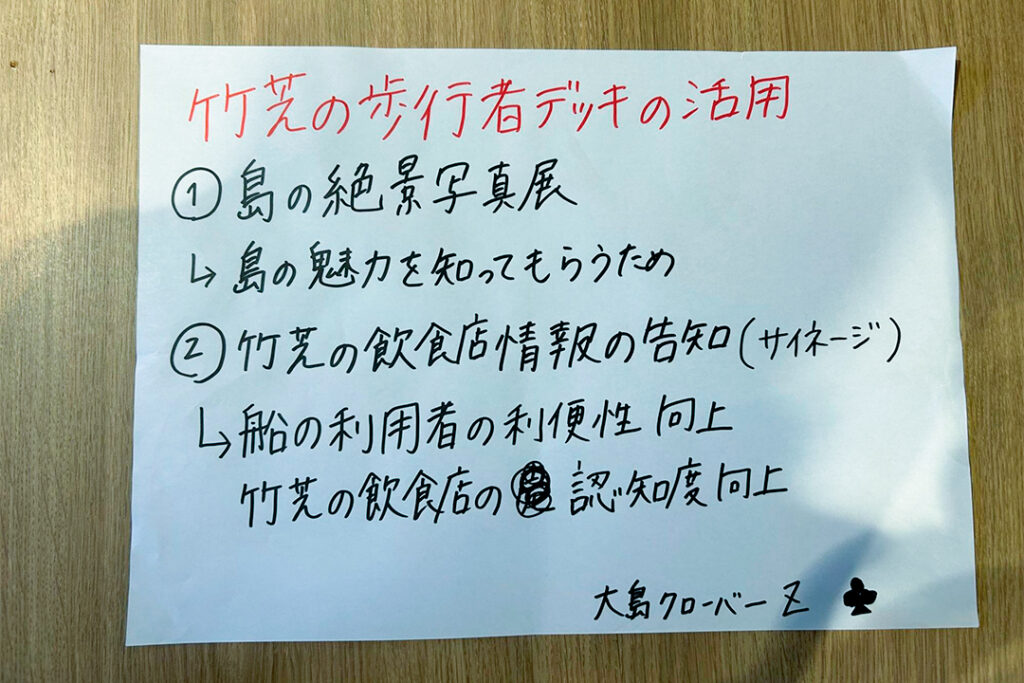 竹芝の歩行者デッキの活用
① 島の絶景写真展
↳ 島の魅力を知ってもらうため
② 竹芝の飲食店情報の告知(サイネージ)
↳ 船の利用者の利便性 向上
竹芝の飲食店の 認知度向上
大島クローバーZ ♣